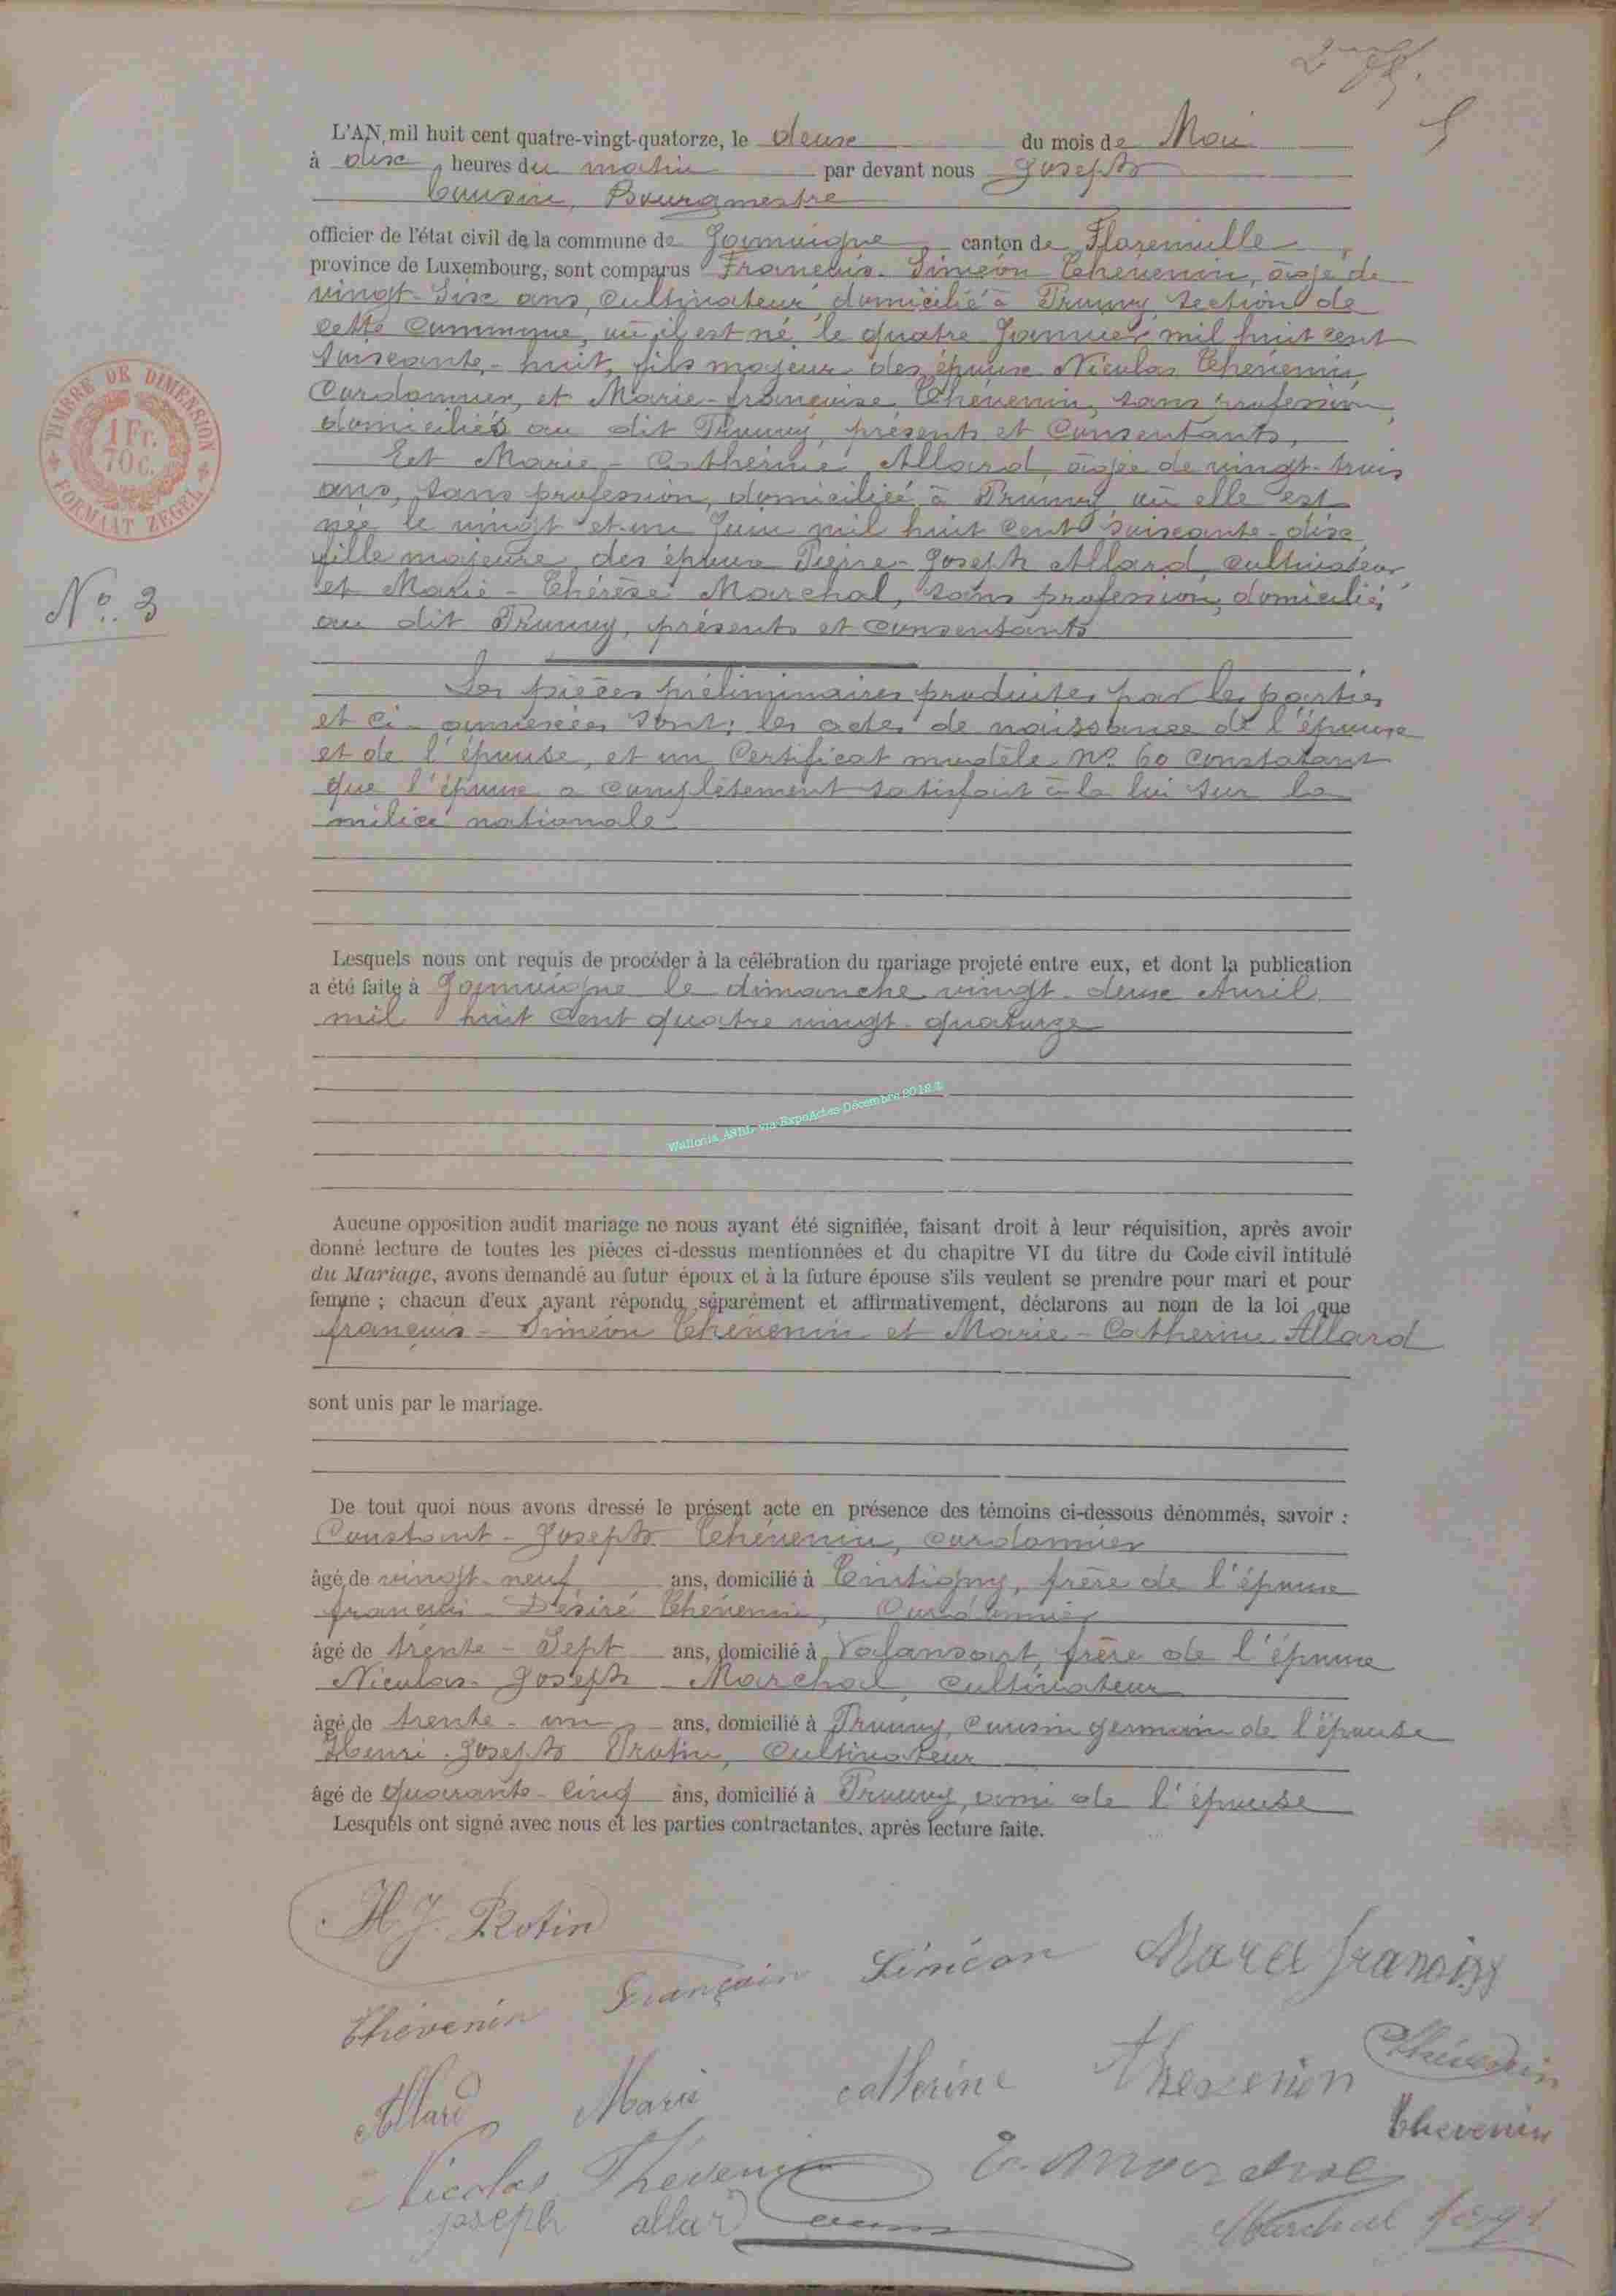 2me
5
L'AN, mil huit cent quatre-vingt-quatorze, le deux du mois de Mai
à dix heures du matin par devant nous Joseph
Cousin, Bourgmestre
officier de l'état civil de la commune de Jamoigne, canton de Florenville,
province de Luxembourg, sont comparus François-Siméon Thévenin, âgé de
vingt-six ans, cultivateur, domicilié à Prouvy, section de
cette commune, où il est né le quatre Janvier mil huit cent
soixante-huit, fils majeur des époux Nicolas Thévenin,
Cordonnier, et Marie-françoise Thévenin, sans profession,
domiciliés au dit Prouvy, présents et consentants,
Et Marie-Catherine Allard, âgée de vingt-trois
ans, sans profession, domiciliée à Prouvy, où elle est
née le vingt et un Juin mil huit cent soixante-dix
fille majeure des époux Pierre-Joseph Allard, cultivateur
et Marie-Thérèse Marchal, sans profession, domiciliés
au dit Prouvy, présents et consentants
Les pièces préliminaires produites par les parties
et ci-annexées sont: les actes de naissance de l'époux
et de l'épouse, et un Certificat modèle No. 60 constatant
que l'époux a complètement satisfait à la loi sur la
milice nationale
TIMBRE OR DIMENSION
1 Fr.
70 c.
FORMAAT ZEGEL
No. 3
Lesquels nous ont requis de procéder à la célébration du mariage projeté entre eux, et dont la publication
a été faite à Jamoigne le dimanche vingt-deux Avril
mil huit cent quatre vingt-quatorze
Wallonia Asbl via ExpoActes Décembre 2012
Aucune opposition audit mariage ne nous ayant été signifiée, faisant droit à leur réquisition, après avoir
donné lecture de toutes les pièces ci-dessus mentionnées et du chapitre VI du titre du Code civil intitulé
du Mariage, avons demandé au futur époux et à la future épouse s'ils veulent se prendre pour mari et pour
femme ; chacun d'eux ayant répondu séparément et affirmativement, déclarons au nom de la loi que
françois-Siméon Thévenin et Marie-Catherine Allard
sont unis par le mariage.
De tout quoi nous avons dressé le présent acte en présence des témoins ci-dessous dénommés, savoir :
Constant-Joseph Thévenin, cordonnier
âgé de vingt-neuf ans, domicilié à Tintigny, frère de l'époux
françois-Désiré Thévenin, Cordonnier
âgé de trente-Sept ans, domicilié à Valansart, frère de l'époux
Nicolas-Joseph Marchal, cultivateur
âgé de trente-un ans, domicilié à Prouvy, cousin germain de l'épouse
Henri-Joseph Protin, Cultivateur
âgé de quarante-cinq ans, domicilié à Prouvy, ami de l'épouse
Lesquels ont signé avec nous et les parties contractantes, après lecture faite.
H J. Protin
Thévenin François Siméon
Allard Marie catherine
Thévenin
Thevenin
Nicolas Thévenin
joseph allard
Marchal